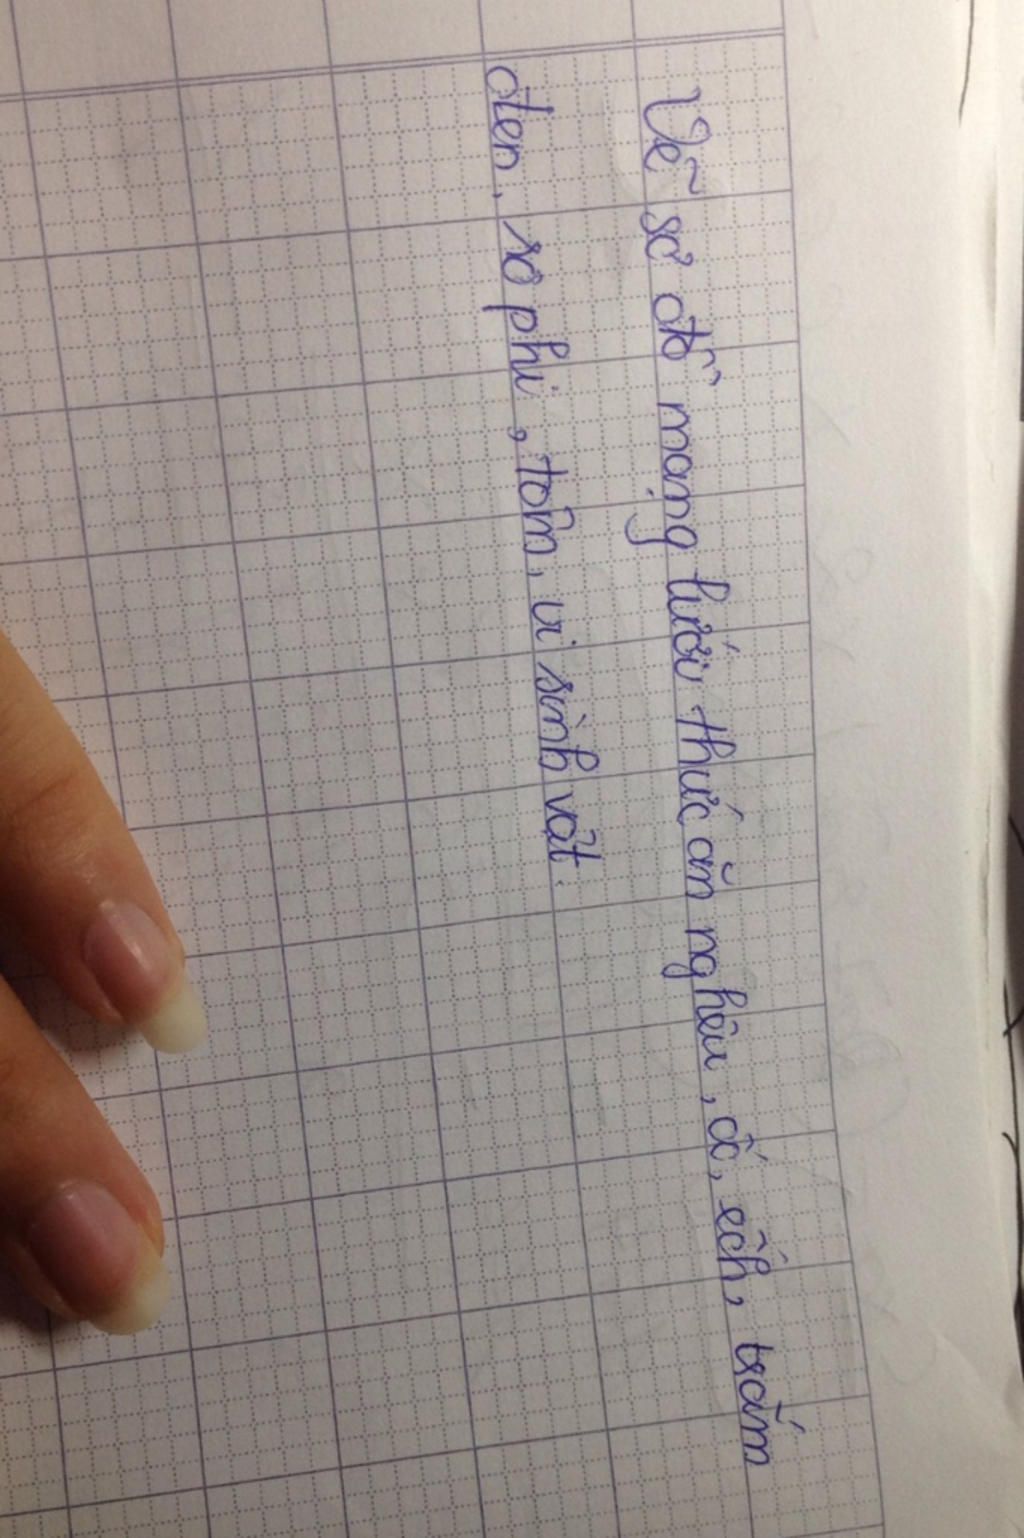 Vẽ sơ đồ mạng lưới thức ăn nghêu, ốc, ếch, trắm
đen, rô phi, tôm, vi sinh vật.